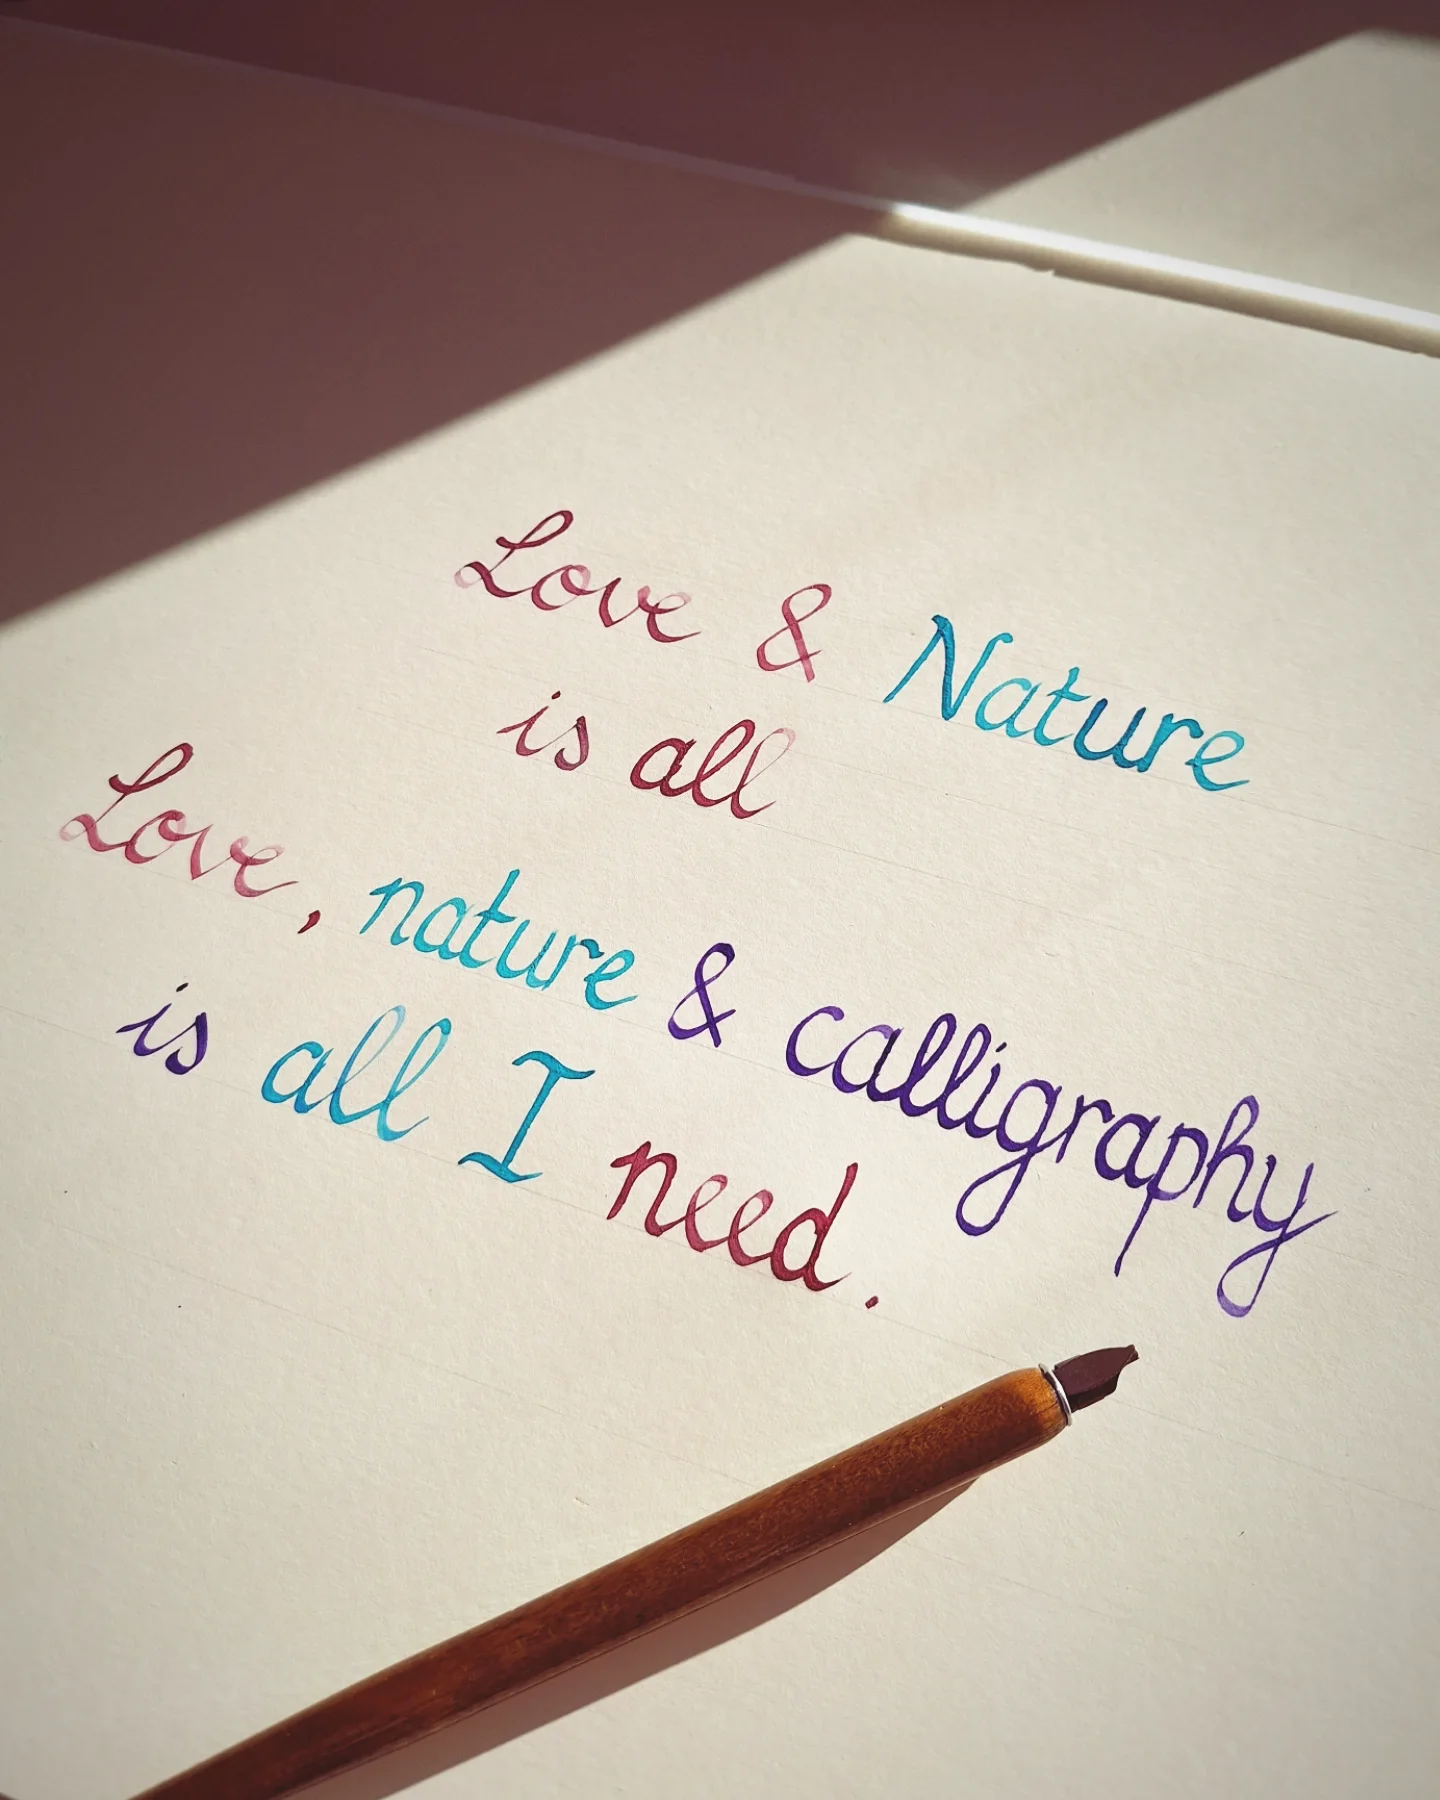 Love & Nature
is all
Love, nature & calligraphy
is all I need.